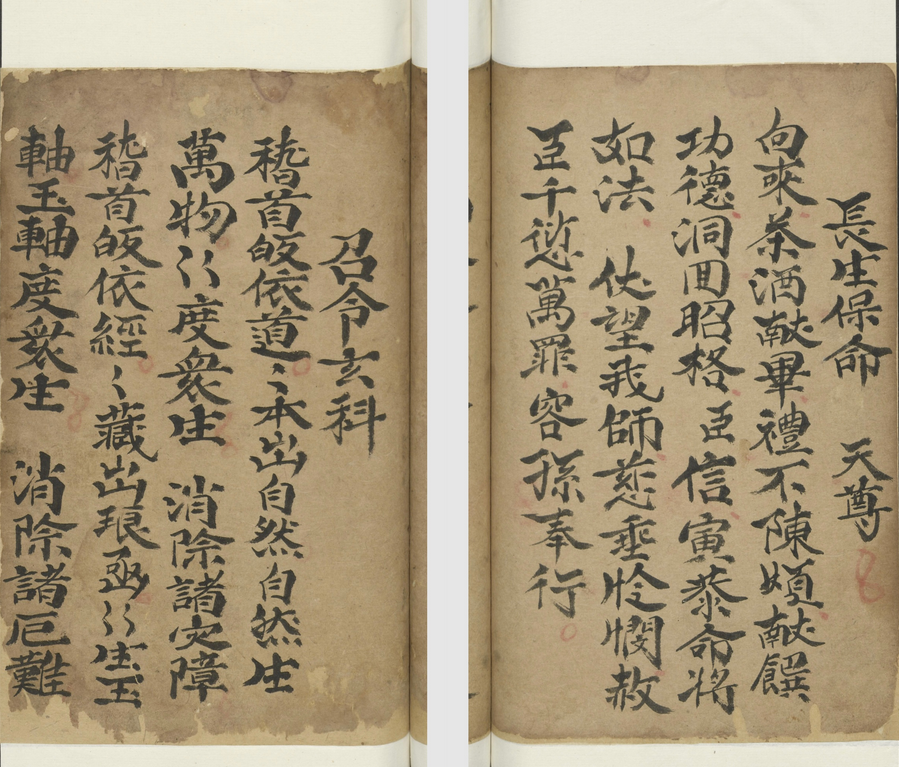 長生保命 天尊
向來茶酒献畢禮不陳煩献饌
功德洞回昭格臣信寅恭命将
如法 仗望我師慈垂怜憫赦
臣千愆萬罪容孫奉行
召令玄科
稽首皈依道〻本出自然自然生
萬物〻度衆生 消除諸灾障
稽首皈依經〻藏出琅凾〻生玉
軸玉軸度衆生 消除諸厄難